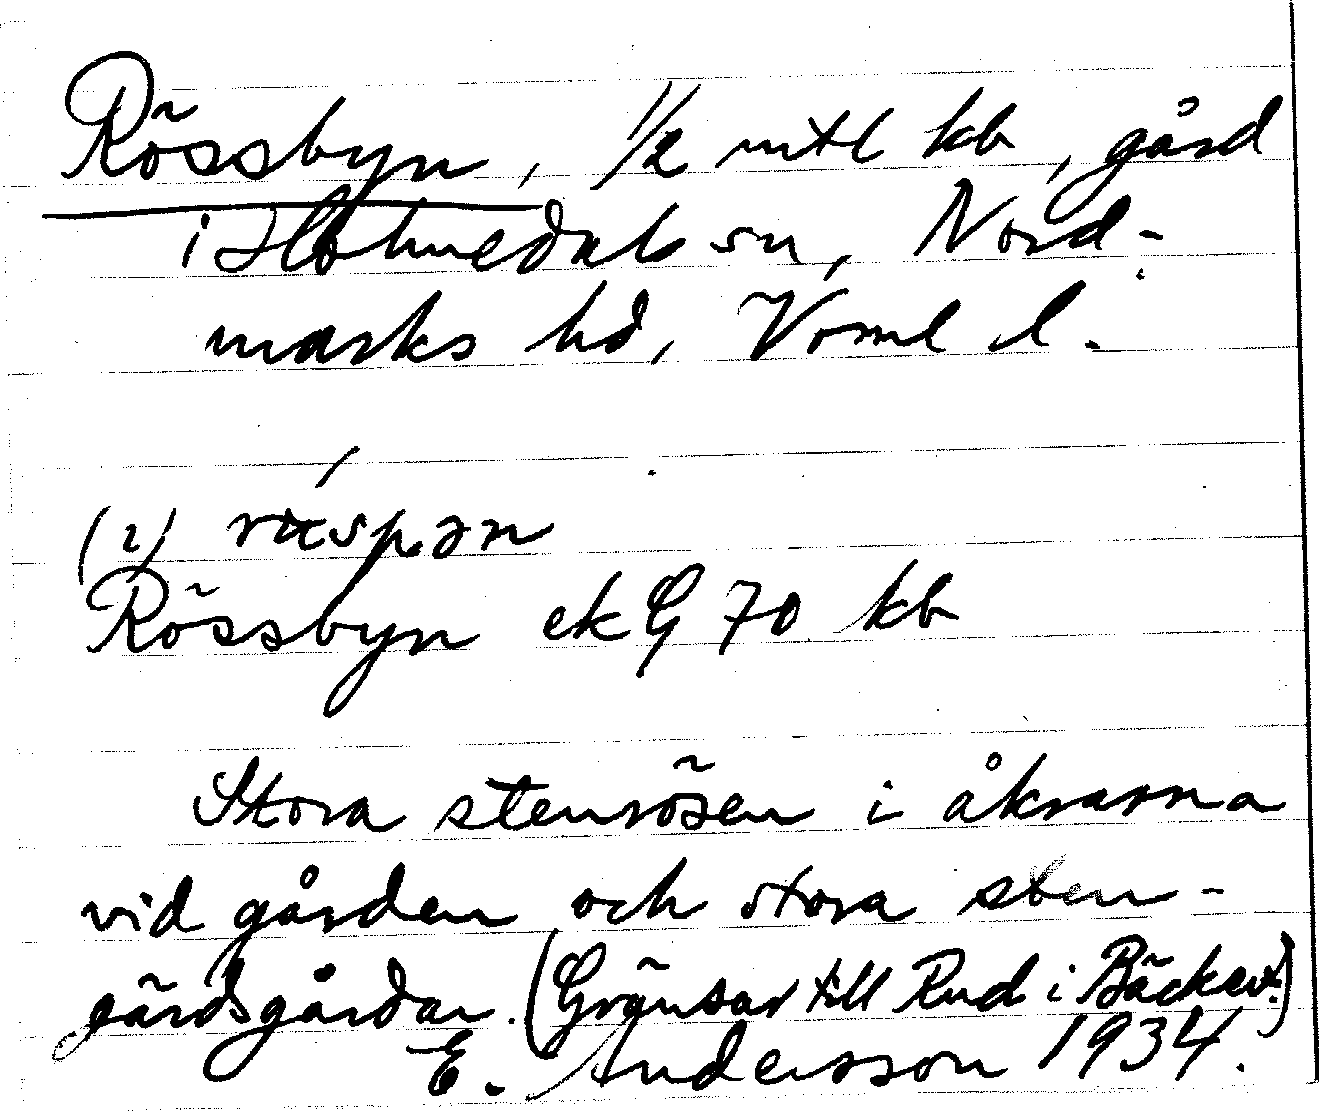 Rössbyn, 1/2 mtl kb, gård
i Holmedals sn, Nord-
marks hd, Värml l.
(i)
Rössbyn ek G 70 kb
Stora stenrösen i åkrarna
vid gården och stora sten-
gärdsgårdar. (Gränsar till Rud i Bäckev.)
E. Andersson 1934.